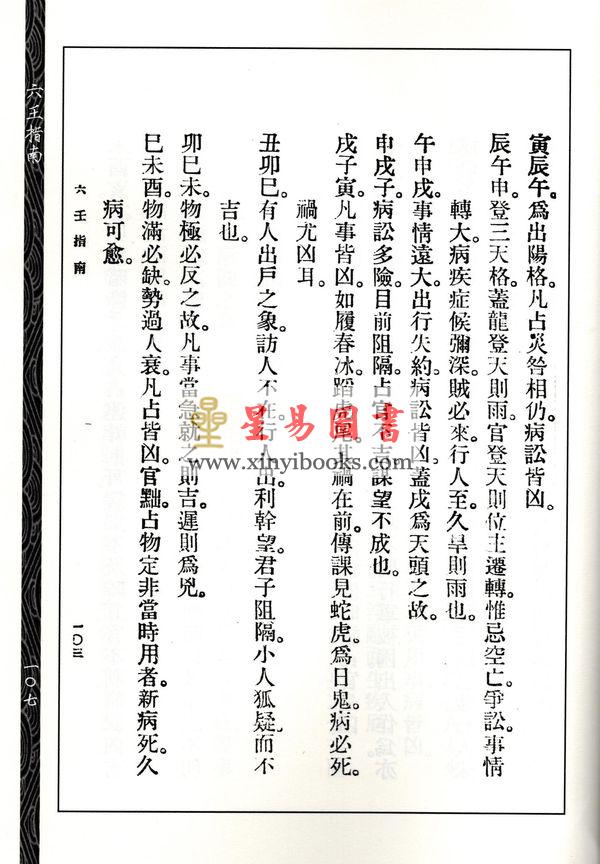 寅辰午。爲出陽格。凡占災咎相仍。病訟皆凶。
辰午申。登三天格。蓋龍登天則雨。官登天則位主遷轉。惟忌空亡。爭訟。事情
轉大。病疾症候彌深。賊必來。行人至。久旱則雨也。
午申戌。事情遠大。出行失約。病訟皆凶。蓋戌爲天頭之故。
申戌子。病訟多險。目前阻隔。占官不吉。謀望不成也。
戌子寅。凡事皆凶。如履春冰。蹈虎尾。其禍在前。傳課見蛇虎。爲日鬼。病必死。
禍尤凶耳。
丑卯巳。有人出戶之象。訪人不在。行人出。利幹望。君子阻隔。小人狐疑。而不
吉也。
卯巳未。物極必反之故。凡事當急就之則吉。遲則爲兇。
巳未酉。物滿必缺。勢過人衰。凡占皆凶。官黜。占物定非當時用者。新病死。久
病可愈。
六壬指南
一〇三
六壬指南
一〇七
星易圖書
www.xinyibooks.com